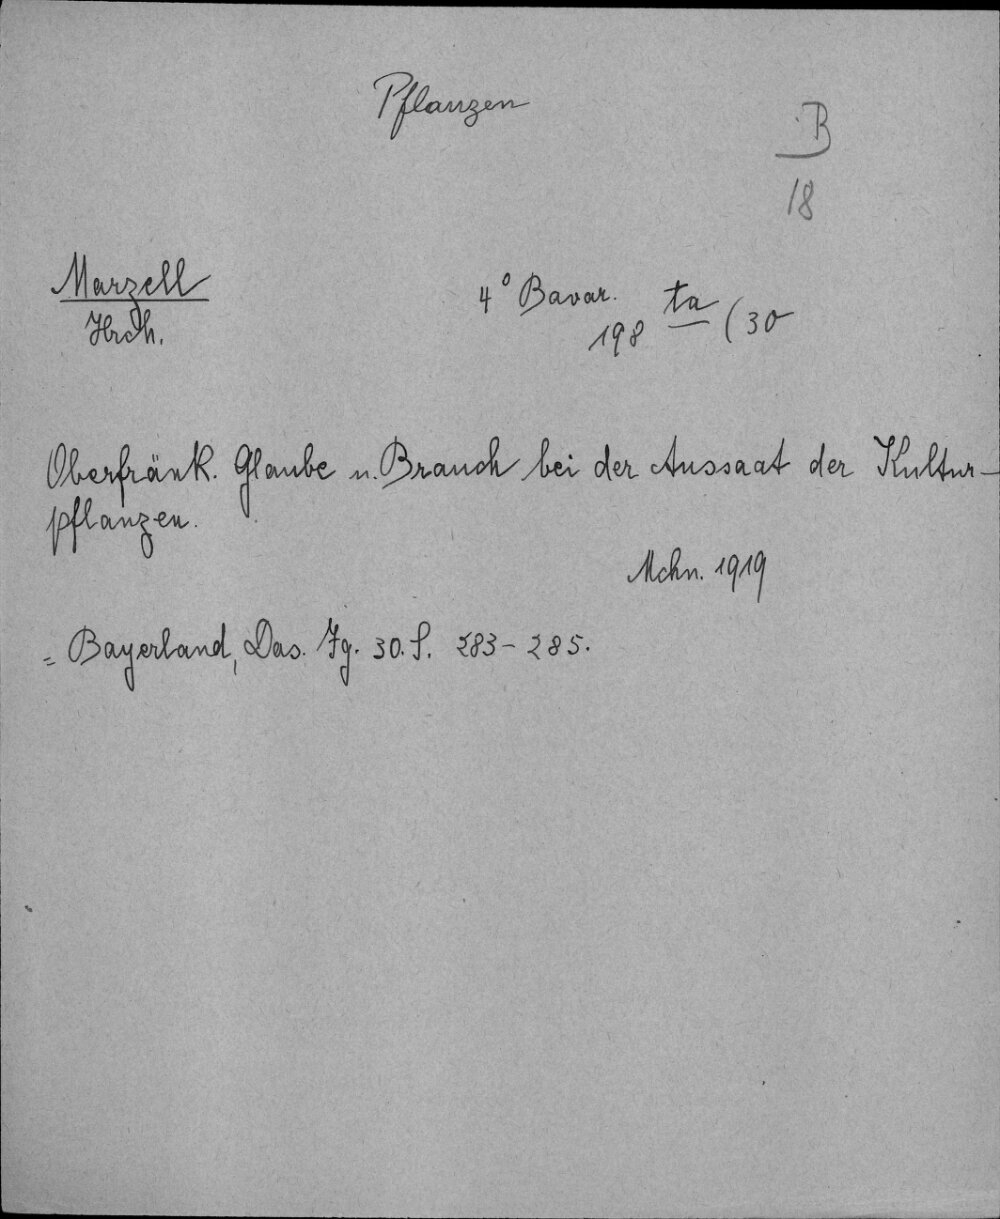 Pflanzen
B
18
Marzell
Hrch.
4° Bavar. ta
198 (30
Oberfränk. Glaube u. Brauch bei der Aussaat der Kultur-
pflanzen.
Mchn. 1919
= Bayerland, Das. Jg. 30. S. 283-285.